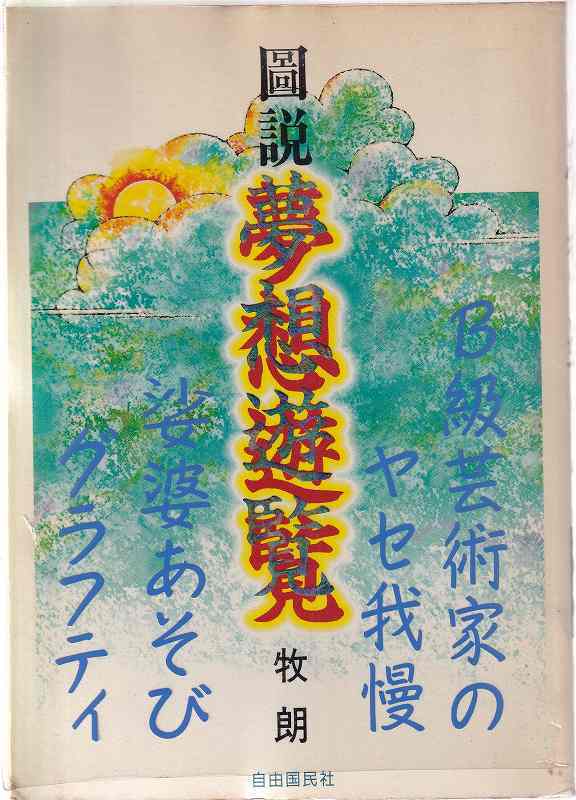 圖説
夢想遊覧
B級芸術家の
ヤセ我慢
娑婆あそび
グラフティ
牧朗
自由国民社